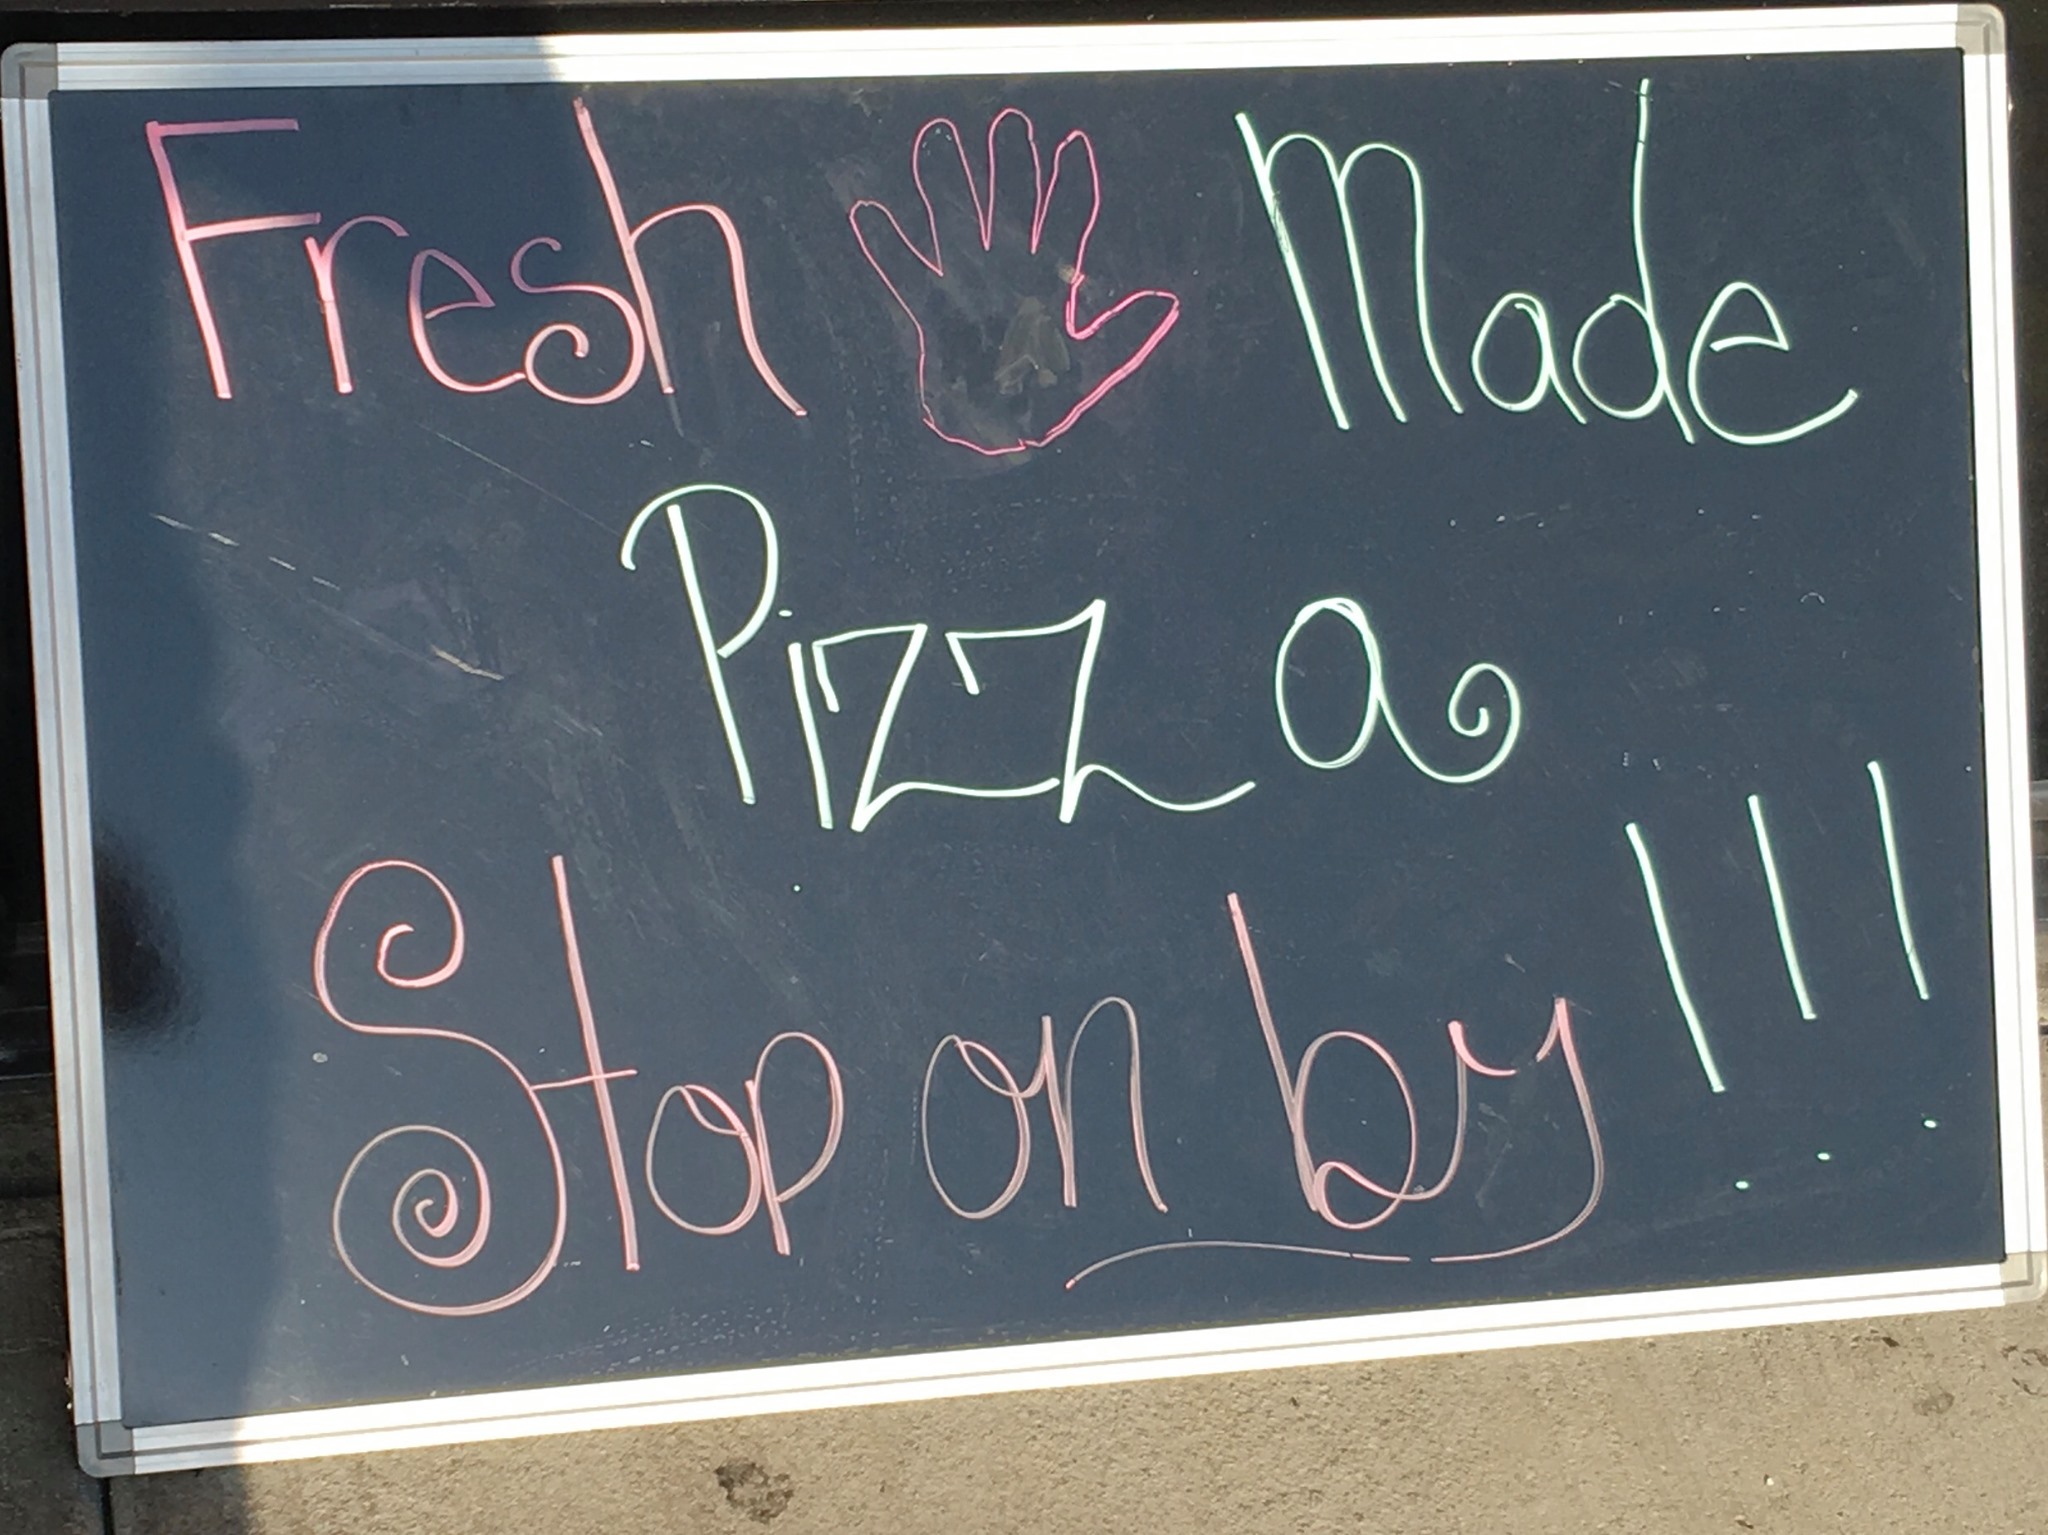 Fresh Made
Pizza
Stop on by!!!